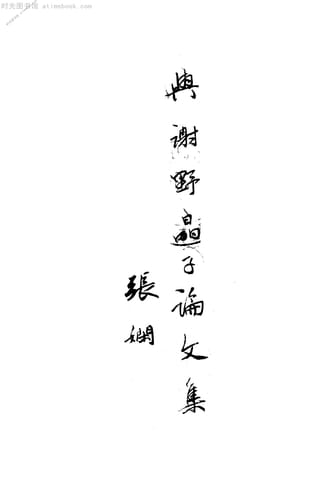 时光图书馆 atimebook.com
與謝野晶子論文集
張嫻